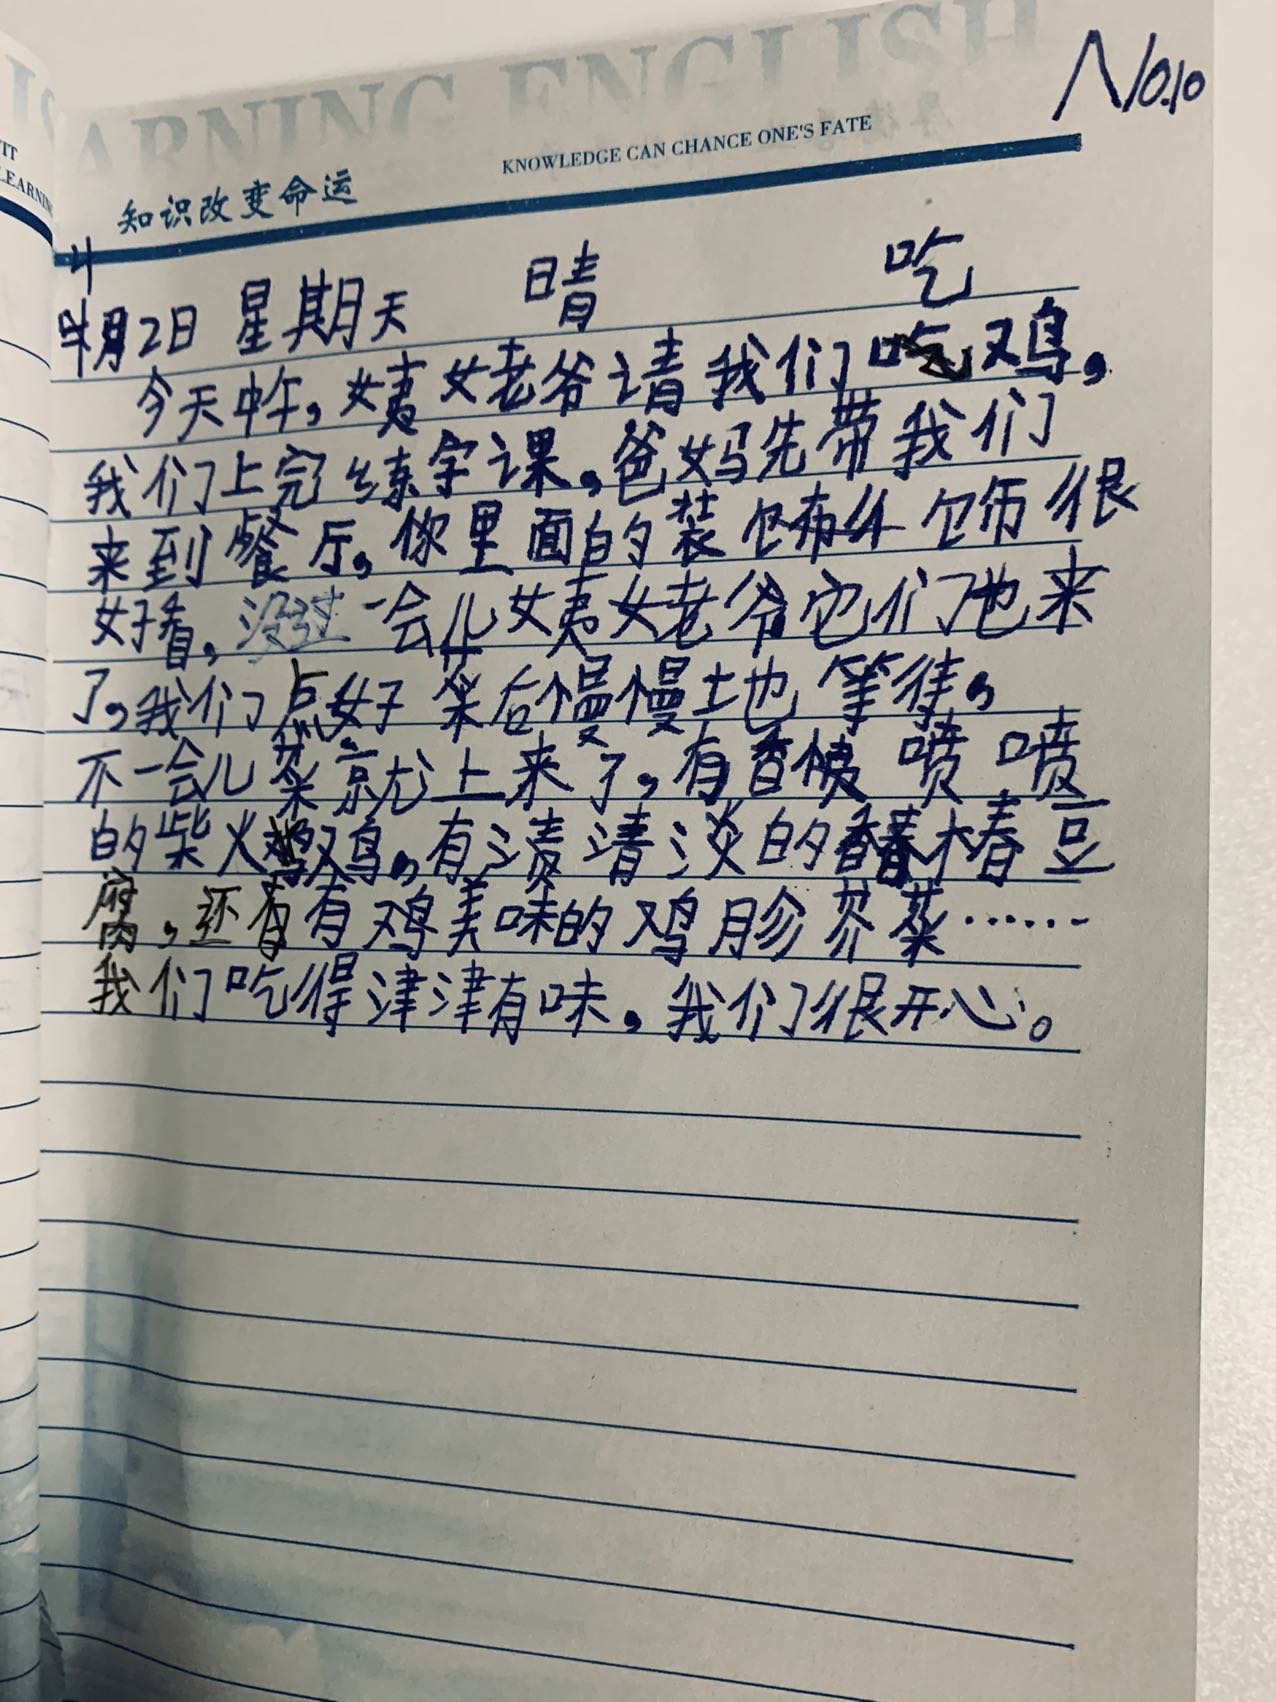 LEARNING ENGLISH
No.10
KNOWLEDGE CAN CHANCE ONE'S FATE
知识改变命运
4
4月2日 星期天 晴 吃
今天中午，姨姥爷请我们吃鸡，
我们上完练字课，爸妈先带我们
来到餐厅，里面的装饰布很
好看，没过一会儿姨姥爷它们也来
了，我们点好菜后慢慢土地等待，
不一会儿菜就上来了，有香喷喷
的柴火鸡，有清淡的香椿豆
腐，还有有鸡美味的鸡胗芥菜……
我们吃得津津有味，我们很开心。